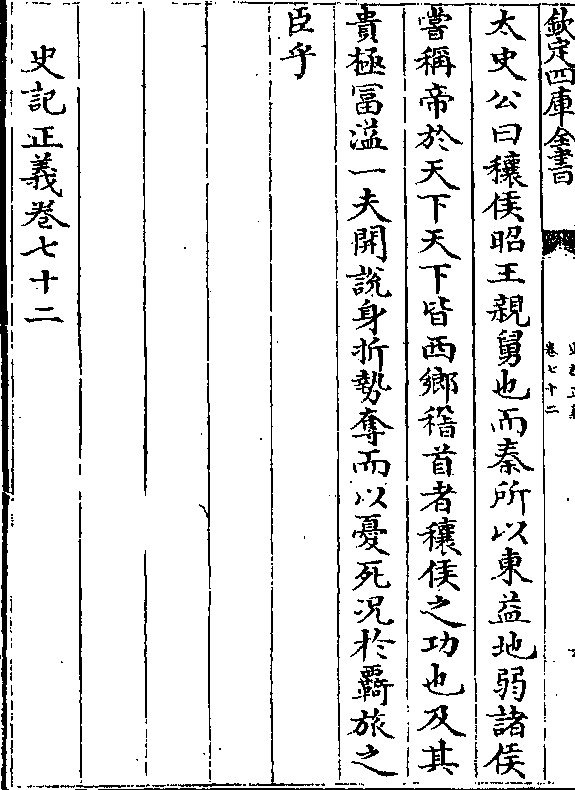 欽定四庫全書
卷七十二
太史公曰穰侯昭王親舅也而秦所以東益地弱諸侯
嘗稱帝於天下天下皆西鄉稽首者穰侯之功也及其
貴極冨溢一夫開說身折勢奪而以憂死况於羇旅之
臣乎
史記正義卷七十二